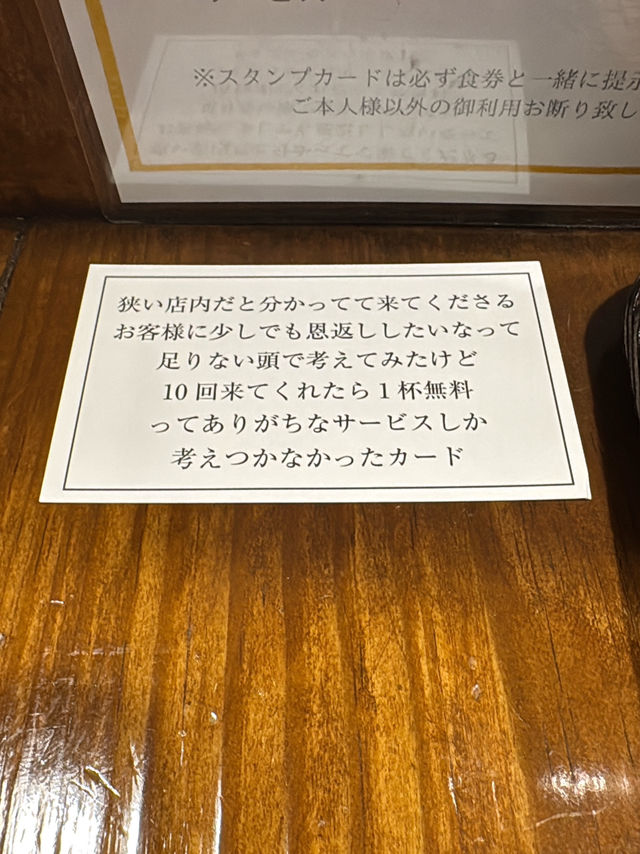 ※スタンプカードは必ず食券と一緒に提示
ご本人様以外の御利用お断り致し
狭い店内だと分かってて来てくださる
お客様に少しでも恩返ししたいなって
足りない頭で考えてみたけど
10回来てくれたら1杯無料
ってありがちなサービスしか
考えつかなかったカード